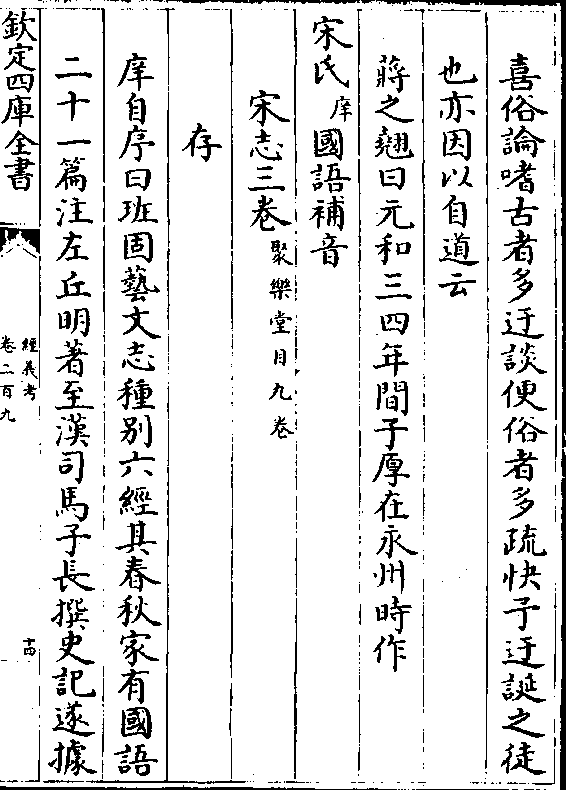 喜俗論嗜古者多迂談便俗者多疏快予迂誕之徒
也亦因以自道云
蔣之翹曰元和三四年間子厚在永州時作
宋氏庠國語補音
宋志三卷聚樂堂目九卷
存
庠自序曰班固藝文志種別六經其春秋家有國語
二十一篇注左丘明著至漢司馬子長撰史記遂據
欽定四庫全書
經義考
卷二百九
十四